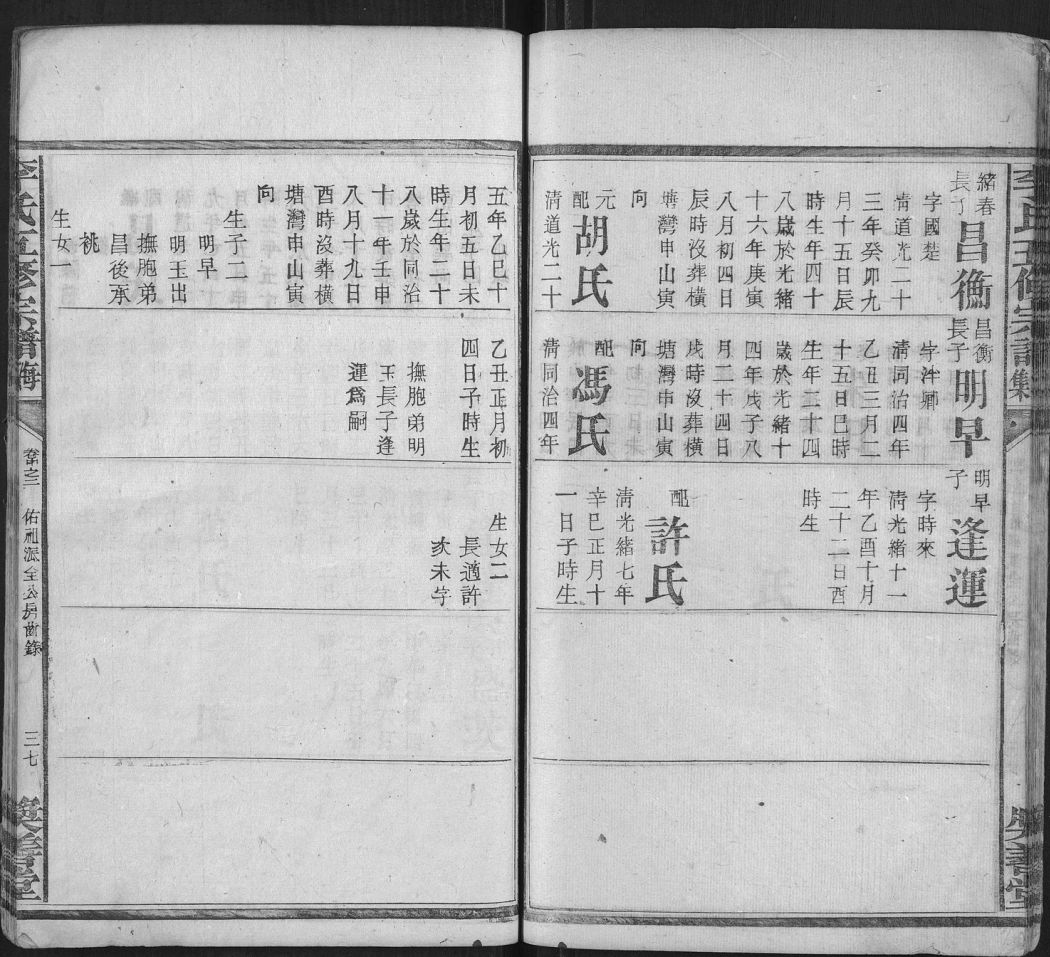 李氏五修宗譜
善堂
緒春
長子
昌衡
字國楚
清道光二十
三年癸卯九
月十五日辰
時生年四十
八歲於光緒
十六年庚寅
八月初四日
辰時沒葬橫
塘灣申山寅
向
元配
胡氏
清道光二十
昌衡
長子
明早
字泮卿
清同治四年
乙丑三月二
十五日巳時
生年二十四
歲於光緒十
四年戊子八
月二十四日
戌時沒葬橫
塘灣申山寅
向
配
馮氏
清同治四年
明早
子
逢運
字時來
清光緒十一
年乙酉十月
二十二日酉
時生
配
許氏
清光緒七年
辛巳正月十
一日子時生
五年乙巳十
月初五日未
時生年二十
八歲於同治
十一年壬申
八月十九日
酉時沒葬橫
塘灣申山寅
向
生子二
明早
明玉出
撫胞弟
昌後承
祧
生女一
乙丑正月初
四日子時生
撫胞弟明
玉長子逢
運爲嗣
生女二
長適許
次未字
李氏五修宗譜
卷之三
佑祖派全公房齒錄
三七
善堂